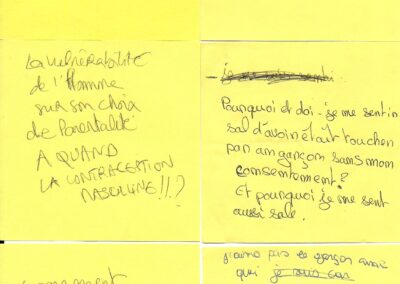 La vulnérabilité
de l'Homme
sur son choix
de Parentalité
A QUAND
LA CONTRACEPTION
MASCULINE!!!?
Pourquoi et doi-je me sentir
sal d'avoir était toucher
par an garçon sans mom
consentement?
Et pourquoi je me sent
aussi sale.
j'aime pas le garçon avec
qui je suis car